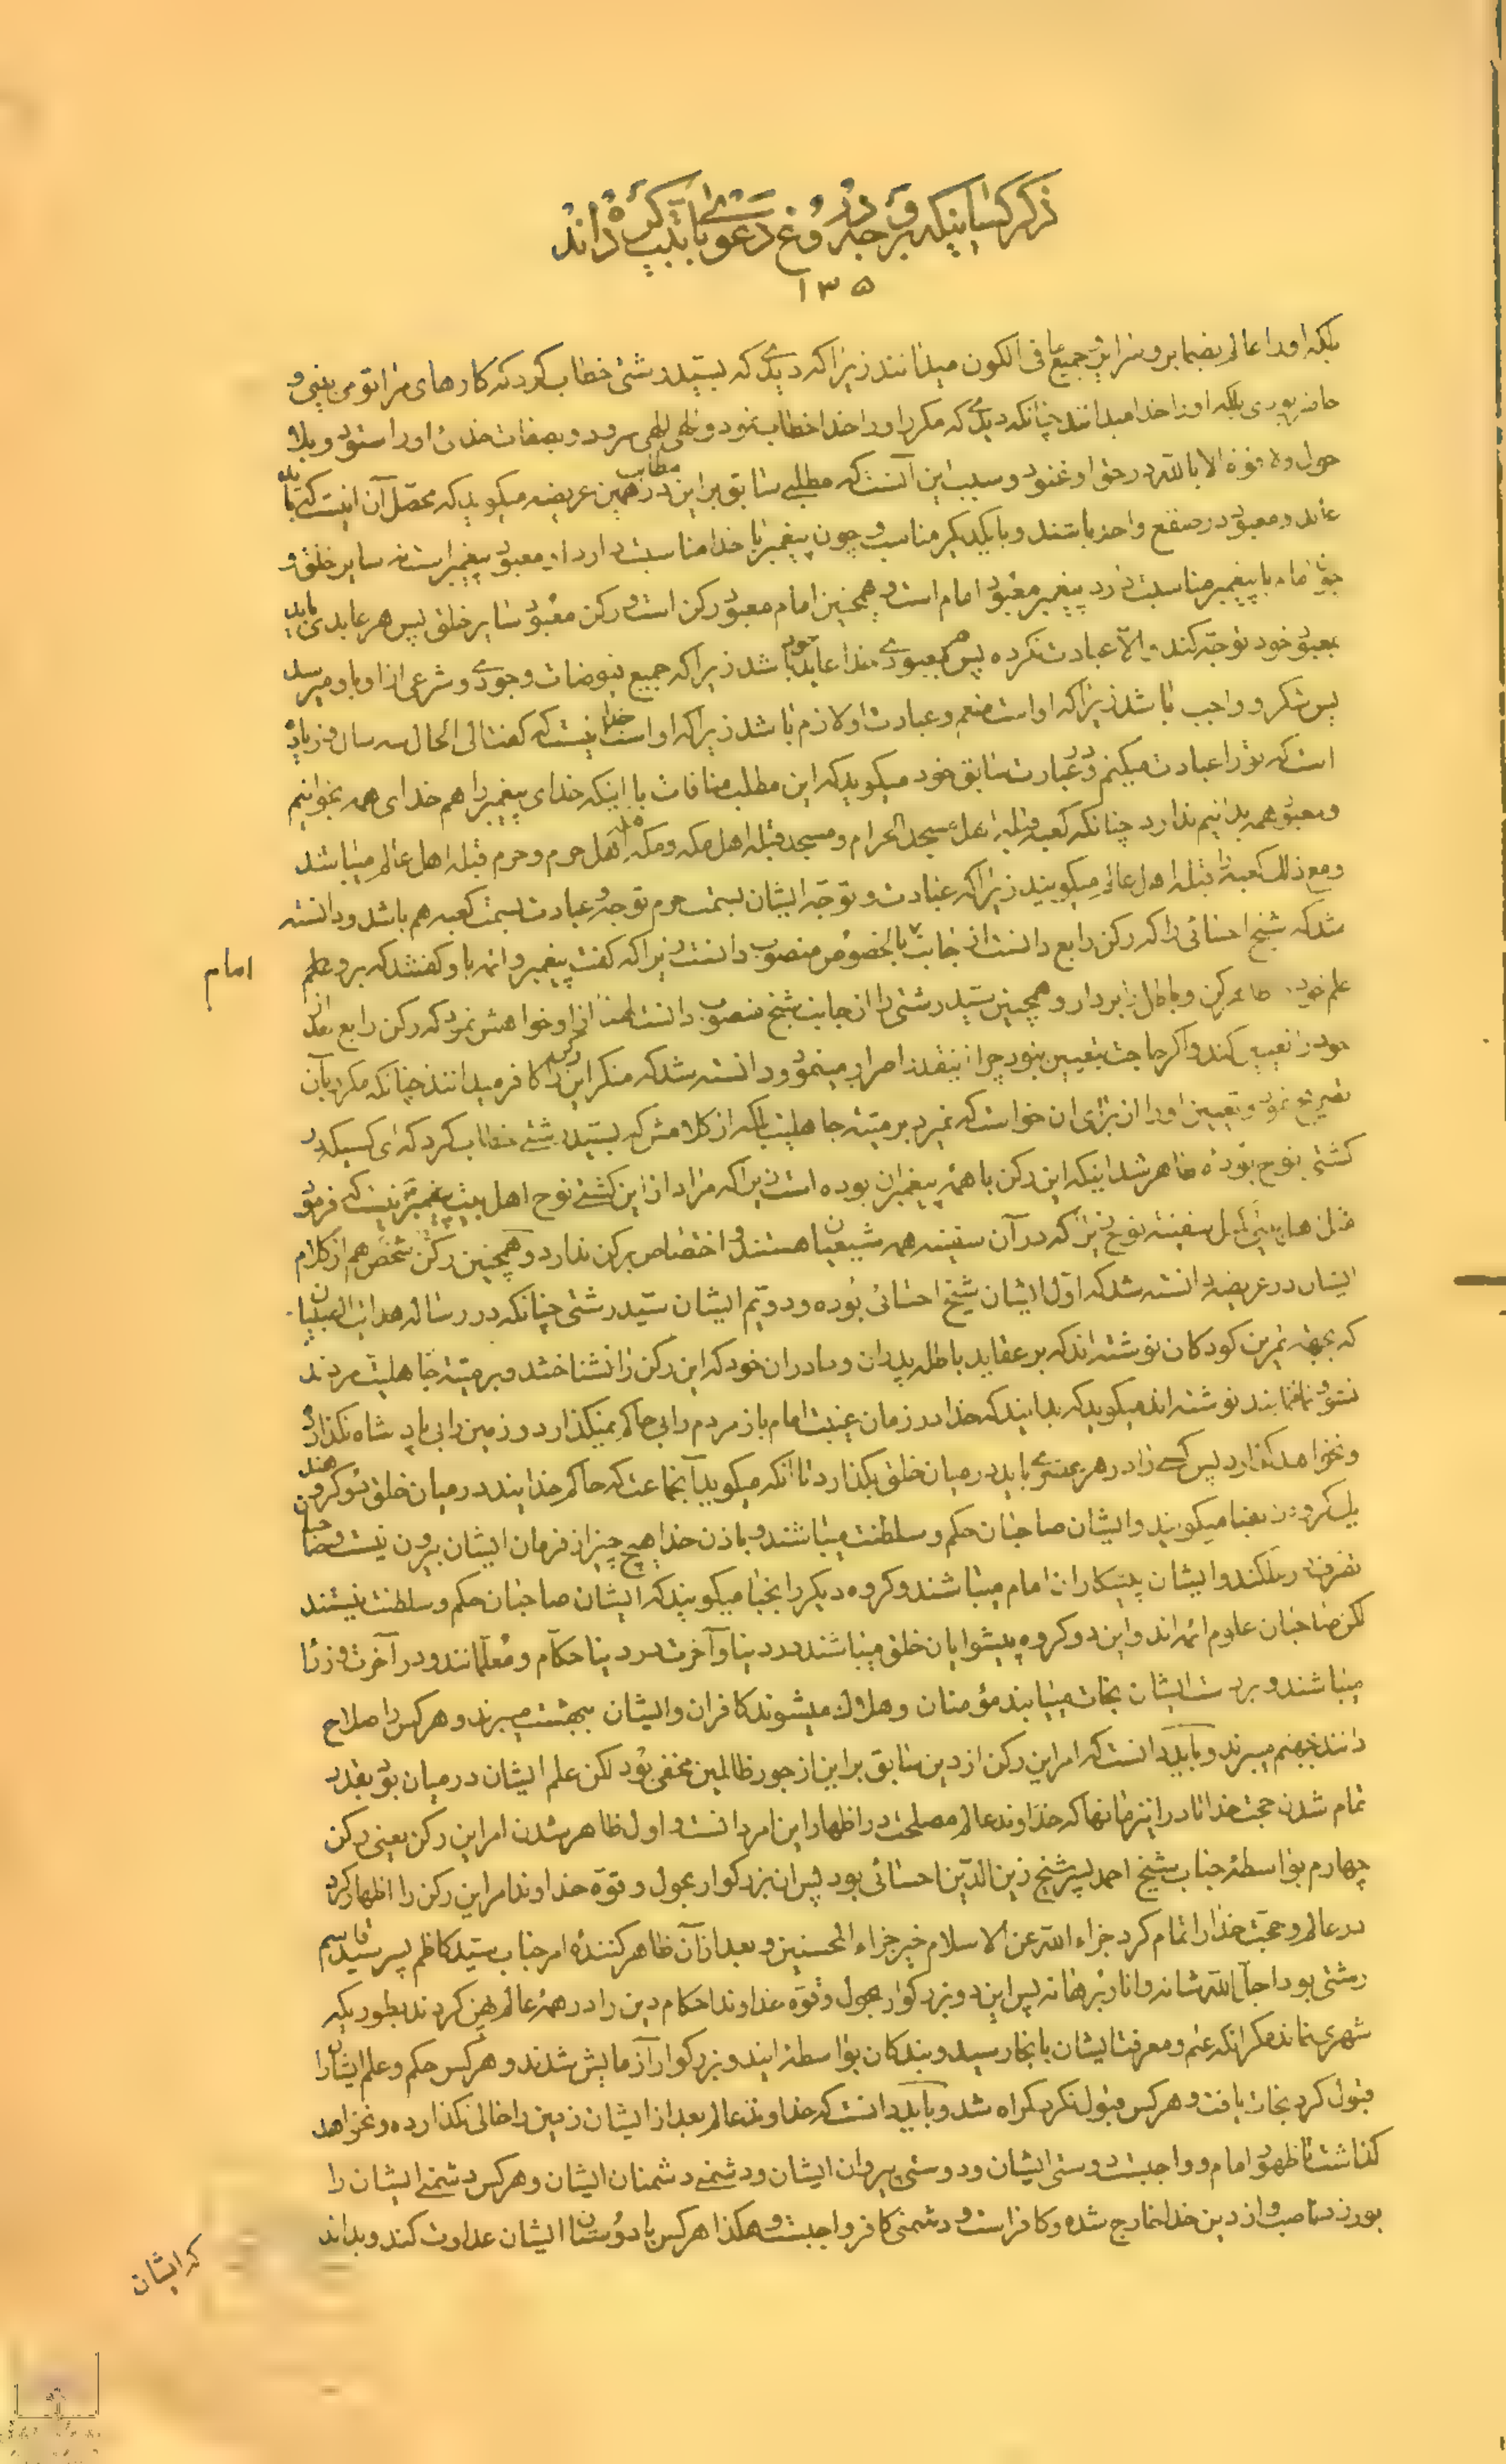 ذکر کسانیکه بر وجه دروغ دعوی بابیت کرده‌اند
۱۳۵
بلکه او را عالم بضمایر و سرایر و جمیع ما فی الکون میدانند زیرا که دیدی که بسید رشتی خطاب کرد که کارهای مرا تو می بینی و
حاضر بودی بلکه او را خدا میدانند چنانکه دیدی که مکرر او را خدا خطاب نمود و الهی الهی سرود و بصفات خدائ او را ستود و بلا
حول ولا قوة الا بالله در حق او غنود و سبب این آنست که مطلبی سابق بر این مطالب در همین عریضه میکوید که محصل آن اینست که باید
عابد و معبود در صقع واحد باشند و با یکدیکر مناسب و چون پیغمبر با خدا مناسبت دارد او معبود پیغمبر است نه سایر خلق و
چون امام با پیغمبر مناسبت دارد پیغمبر معبود امام است و همچنین امام معبود رکن است و رکن معبود سایر خلق پس هر عابدی باید
بمعبود خود توجه کند والا عبادت نکرده پس هر معبودی خدا عابد خود باشد زیرا که جمیع فیوضات وجودی و شرعی از او باو میرسد
پس شکر او واجب باشد زیرا که او است منعم و عبادت او لازم باشد زیرا که او است خدا اینست که کفت الی الحال سه سال و زیاده
است که تو را عبادت میکنم و در عبارت سابق خود میکوید که این مطلب منافات با اینکه خدای پیغمبر را هم خدای همه بخوانیم
و معبود همه بدانیم ندارد چنانکه کعبه قبله اهل مسجد الحرام و مسجد قبله اهل مکه و مکه قبله اهل حرم و حرم قبله اهل عالم میباشد
و مع ذلک کعبه را قبله اهل عالم میکویند زیرا که عبادت و توجه ایشان بسمت حرم توجه و عبادت بسمت کعبه هم باشد و دانسته
شد که شیخ احسائی را که رکن رابع دانست از جانب امام بالخصوص منصوب دانست زیرا که کفت پیغمبر و ائمه باو کفتند که برو علم
علم خود را ظاهر کن و باطل را بردار و همچنین سید رشتی را از جانب شیخ منصوب دانست لهذا از او خواهش نمود که رکن رابع بعد از
خود را تعیین کند و اکر حاجت بتعیین نبود چرا اینقدر اصرار مینمود و دانسته شد که منکر این رکن را کافر میدانند چنانکه مکرر بآن
تصریح نمود و تعیین او را از برای ان خواست که نمیرد بر میته جاهلیت بلکه از کلامش که بسید رشتی خطاب کرد که ای کسیکه در
کشتی نوح بوده ظاهر شد اینکه این رکن با همه پیغمبران بوده است زیرا که مراد از این کشتی نوح اهل بیت پیغمبر نیست که فرمود
مثل اهل بیتی کمثل سفینة نوح زیرا که در آن سفینه همه شیعیان هستند و اختصاص برکن ندارد و همچنین رکن شخص هم از کلام
ایشان در عریضه دانسته شد که اول ایشان شیخ احسائی بوده و دویم ایشان سید رشتی چنانکه در رساله هدایت الصبیان
که بجهة تمرین کودکان نوشته‌اند که بر عقاید باطله پدران و مادران خود که این رکن را نشناختند و بر میته جاهلیت مردند
نشو و نما نمایند نوشته‌اند میکوید که بدانید که خدا در زمان غیبت امام باز مردم را بی حاکم نمیکذارد و زمین را بی پادشاه نکذارد
و نخواهد کذارد پس کسی را در هر عصری باید در میان خلق بکذارد تا انکه میکوید آنجماعت که حاکم خدایند در میان خلق دو کروهند
یک کروه را نقبا میکویند و ایشان صاحبان حکم و سلطنت میباشند و باذن خدا هیچ چیز از فرمان ایشان بیرون نیست و صاحبان
تصرف در ملکند و ایشان پیشکاران امام میباشند و کروه دیکر را نجبا میکویند که ایشان صاحبان حکم و سلطنت نیستند
لکن صاحبان علوم ائمه‌اند و این دو کروه پیشوایان خلق میباشند در دنیا و آخرت در دنیا حکام و معلمانند و در آخرت وزرا
میباشند و بر دست ایشان نجات مییابند مؤمنان و هلاک میشوند کافران و ایشان ببهشت میبرند و هر کس را صلاح
دانند بجهنم میبرند و باید دانست که امر این رکن از دین سابق بر این از جور ظالمین مخفی بود لکن علم ایشان در میان بود بقدر
تمام شدن حجت خدا تا در اینزمانها که خداوند عالم مصلحت در اظهار این امر دانست و اول ظاهر شدن امر این رکن یعنی رکن
چهارم بواسطه جناب شیخ احمد پسر شیخ زین الدین احسائی بود پس ان بزرکوار بحول و قوه خداوند امر این رکن را اظهار کرد
در عالم و حجت خدا را تمام کرد جزاه الله عن الاسلام خیر جزاء المحسنین و بعد از آن ظاهر کننده امر جناب سید کاظم پسر سید قاسم
رشتی بود اجل الله شانه و انار برهانه پس این دو بزرکوار بحول و قوه خداوند احکام دین را در همه عالم پهن کردند بطوریکه
شهری نماند مکر انکه علم و معرفت ایشان بانجا رسید و بندکان بواسطه ایندو بزرکوار آزمایش شدند و هر کس حکم و علم ایشان را
قبول کرد نجات یافت و هر کس قبول نکرد کمراه شد و باید دانست که خداوند عالم بعد از ایشان زمین را خالی نکذارده و نخواهد
کذاشت تا ظهور امام و واجبست دوستی ایشان و دوستی پیروان ایشان و دشمنی دشمنان ایشان و هر کس دشمنی ایشان را
بورزد ناصب و از دین خدا خارج شده و کافر است و دشمنی کافر واجبست و هکذا هر کس با دوستان ایشان عداوت کند و بداند
که ایشان